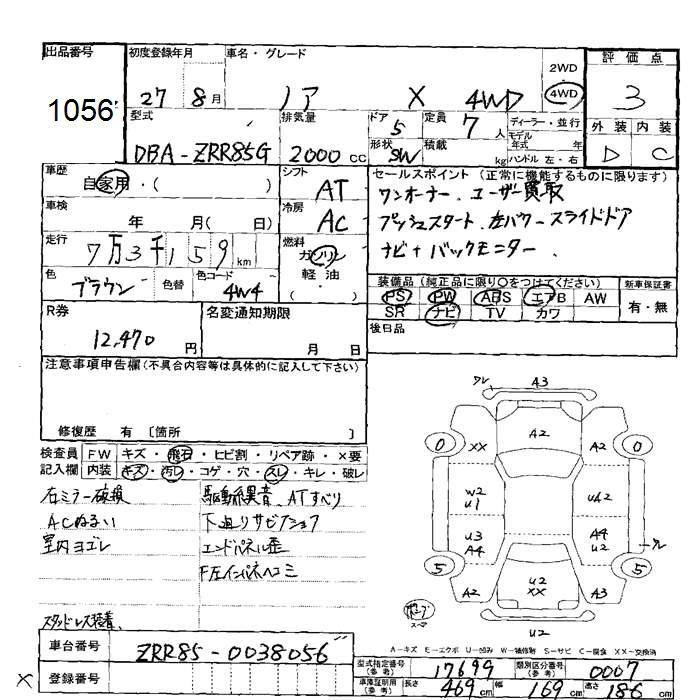 出品番号 初度登録年月 車名・グレード 2WD 評価点
1056 27 8月 ノア X 4WD 4WD 3
型式 排気量 ドア 5 定員 7人 ディーラー・並行 外装 内装
DBA-ZRR85G 2000cc 形状 SW 積載 kg モデル年式 年式 ハンドル 左・右 D C
車歴 シフト セールスポイント (正常に機能するものに限ります)
自家用・( ) AT ワンオーナー、ユーザー買取
車検 冷房 プッシュスタート 左パワースライドドア
年 月( 日) AC ナビ+バックモニター、
走行 燃料
7万3千159km ガソリン
色 色替 色コード 軽油 装備品 (純正品に限り○をつけてください) 新車保証書
ブラウン 4W4 ( ) PS PW ABS エアB AW 有・無
R券 名変通知期限 SR ナビ TV カワ
12,470円 月 日 後日品
注意事項申告欄(不具合内容等は具体的に記入して下さい)
修復歴 有 〔箇所
検査員 FW キズ・飛石・ヒビ割・リペア跡・×要
記入欄 内装 キズ・汚レ・コゲ・穴・スレ・キレ・破レ
右ミラー破損 駆動系異音、ATすべり
ACぬるい 下廻りサビ
室内ヨゴレ エンドパネル歪
F左インパネヘコミ
スタッドレス装着、
ワレ A3
0 XX A2 A2 0
W2 U1 UA2
U3 A4 A4 U2 ワレ
5 A2 U2 XX A3 5
U2
A-キズ E-エクボ U-凹み W-補修跡 S-サビ C-腐食 XX-交換済
車台番号 ZRR85-0038056
登録番号
×
型式指定番号(参考) 17699 類別区分番号(参考) 0007
車庫証明用(参考) 長さ 469cm 幅 169cm 高さ 186cm